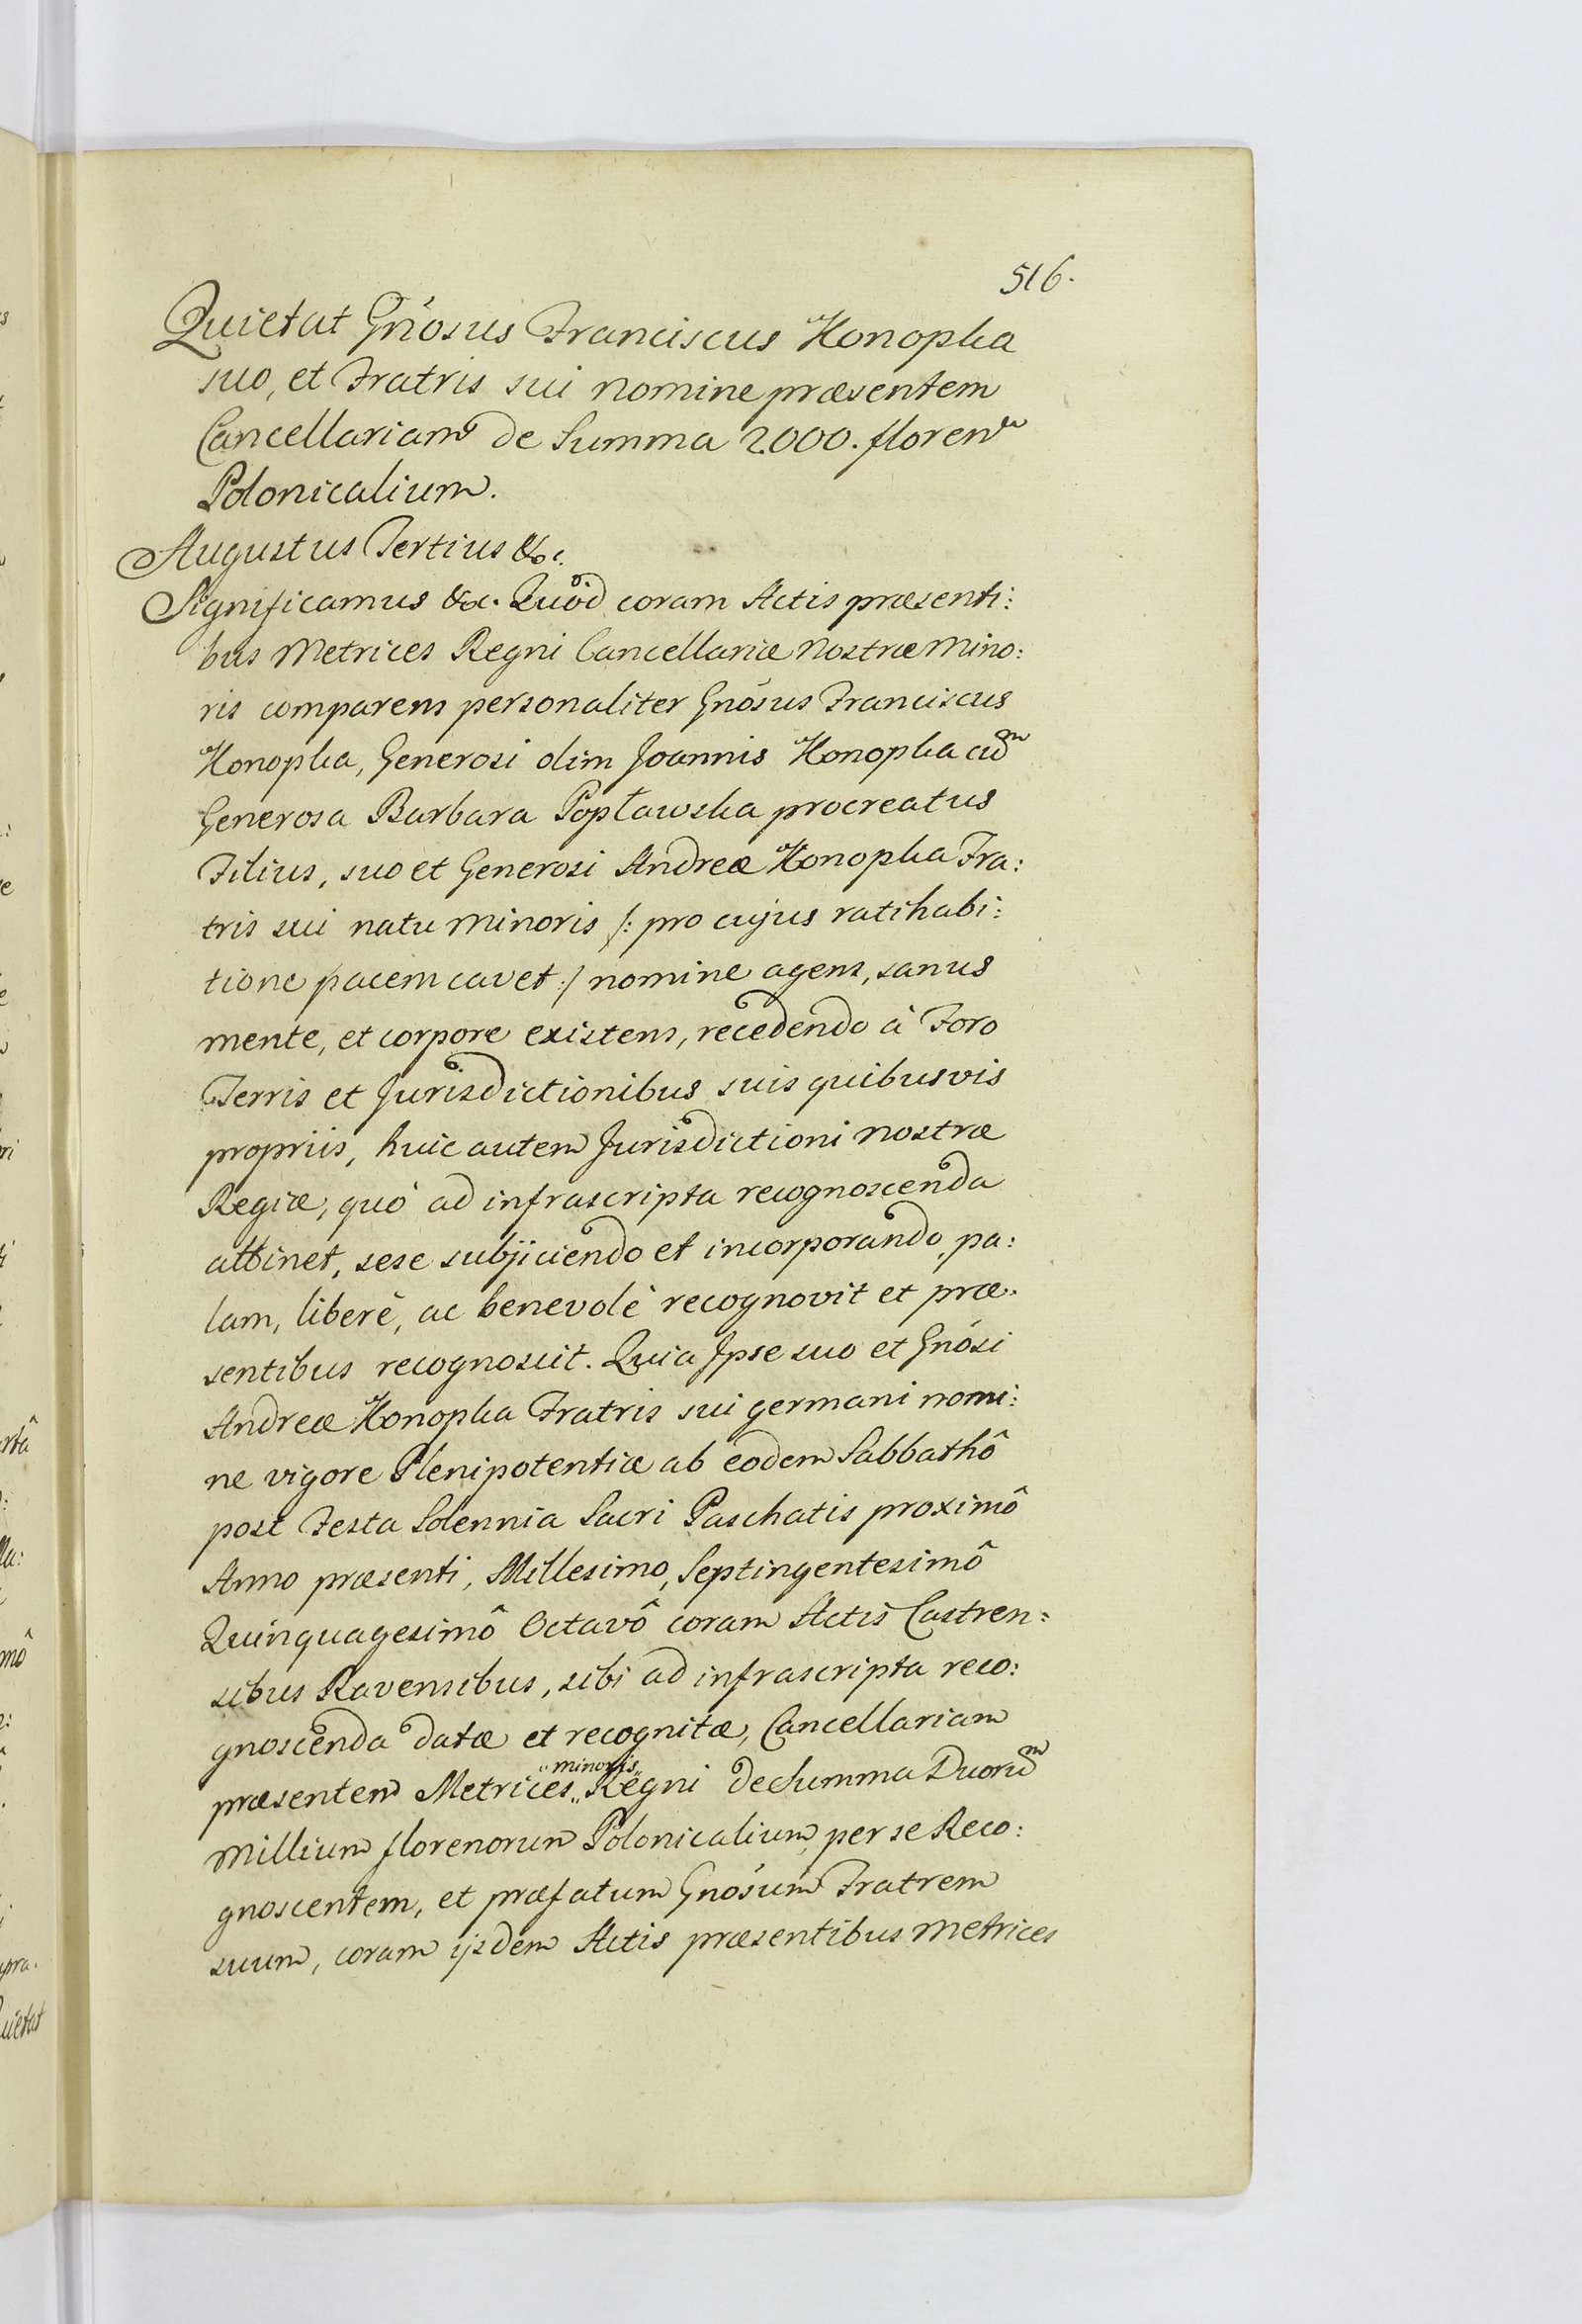 516.
Quietat Gnosus Franciscus Konopka
suo, et Fratris sui nomine præsentem
Cancellariam de Summa 2000. floren
Polonicalium.
Augustus Tertius &c.
Significamus &c. Quod coram Actis præsenti:
bus Metrices Regni Cancellariæ Nostræ Mino:
ris comparens personaliter Gnosus Franciscus
Konopka, Generosi olim Joannis Konopka cum
Generosa Barbara Popławska procreatus
Filius, suo et Generosi Andreæ Konopka Fra:
tris sui natu minoris /: pro cujus ratihabi:
tione pacem cavet :/ nomine agens, sanus
mente, et corpore existens, recedendo à Foro
Terris et Jurisdictionibus suis quibusvis
propriis, huic autem Jurisdictioni Nostræ
Regiæ, quò ad infrascripta recognoscenda
attinet, sese subjiciendo et incorporando, pa:
lam, liberè, ac benevolè recognovit et præ:
sentibus recognoscit. Quia Ipse suo et Gnosi
Andreæ Konopka Fratris sui germani nomi:
ne vigore Plenipotentiæ ab eodem Sabbathô
post Festa Solennia Sacri Paschatis proximô
Anno præsenti, Millesimo, Septingentesimô
Quinquagesimô Octavô coram Actis Castren:
sibus Ravensibus, sibi ad infrascripta reco:
gnoscenda datæ et recognitæ, Cancellariam
præsentem Metrices „minoris„ Regni de Summa Duorum
Millium florenorum Polonicalium, per se Reco:
gnoscentem, et præfatum Gnosum Fratrem
suum, coram ijsdem Actis præsentibus Metrices